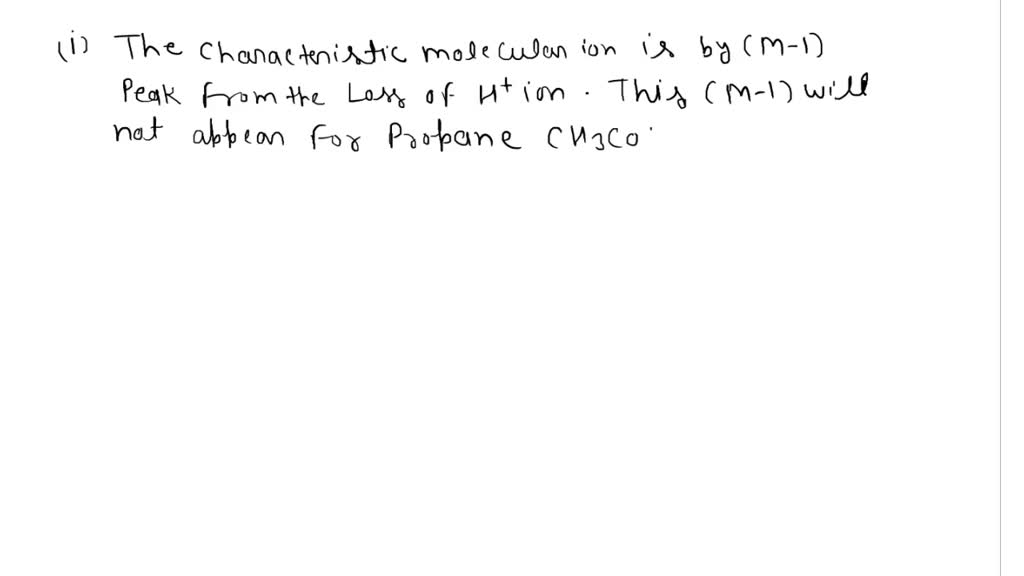 (i) The characteristic molecular ion is by (M-1)
Peak from the Loss of H+ ion. This (M-1) will
not appear for Propane CH3CO